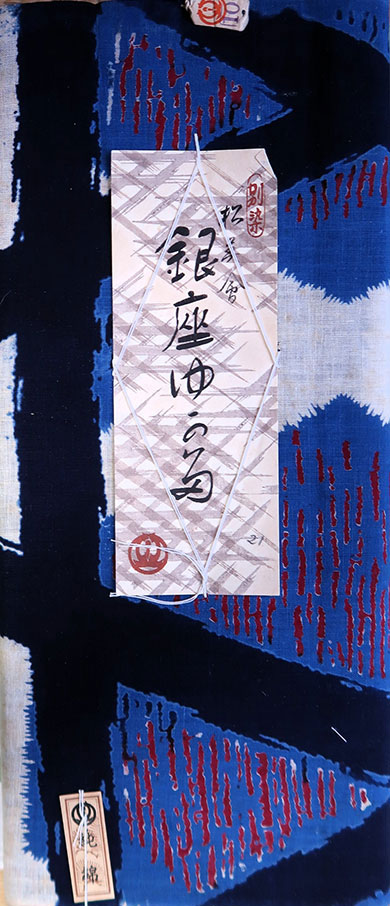 別染
松子會
銀座ゆかた
21
純綿